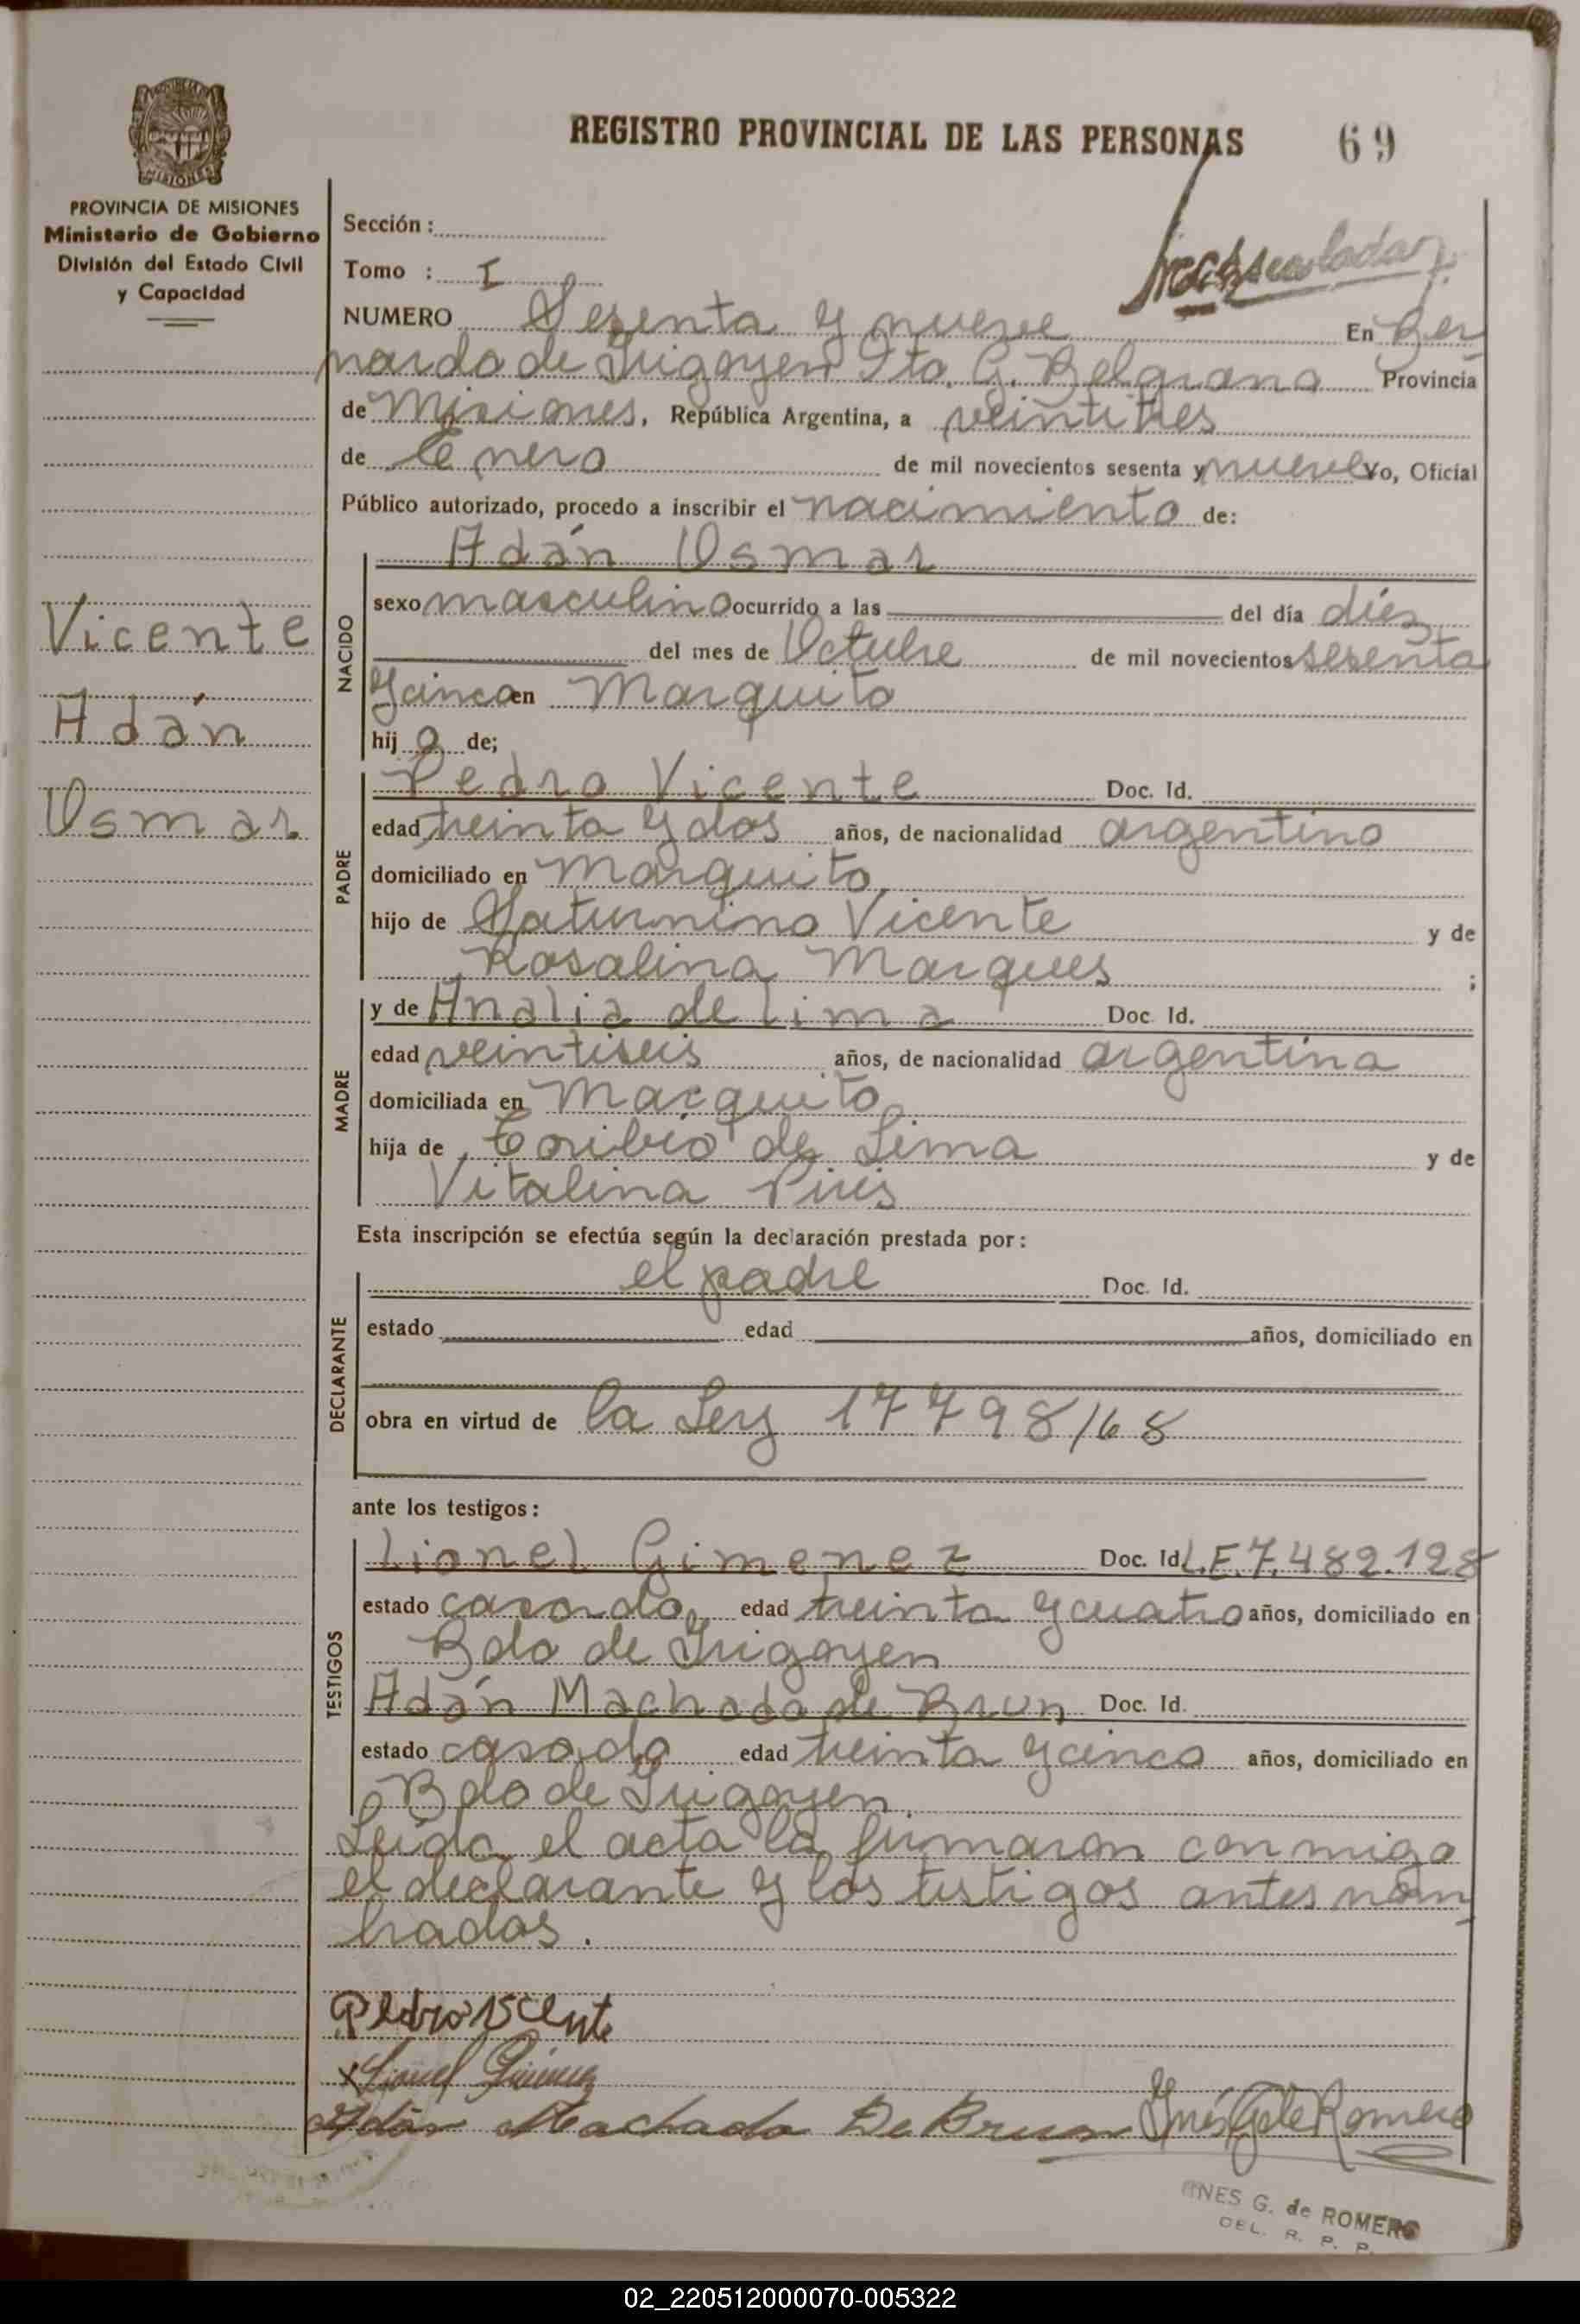 REGISTRO PROVINCIAL DE LAS PERSONAS 69
MISIONES
PROVINCIA DE MISIONES
Ministerio de Gobierno
División del Estado Civil
y Capacidad
Vicente
Adán
Osmar
Sección :
Tomo : I
NUMERO Sesenta y nueve En Ber
nardo de Irigoyen Dto. G. Belgrano Provincia
de Misiones, República Argentina, a veintitres
de Enero de mil novecientos sesenta y nueve Yo, Oficial
Público autorizado, procedo a inscribir el nacimiento de:
NACIDO
Adán Osmar
sexo masculino ocurrido a las del día diez
del mes de Octubre de mil novecientos sesenta
y cinco en Marquito
hij o de;
PADRE
Pedro Vicente Doc. Id.
edad treinta y dos años, de nacionalidad argentino
domiciliado en Marquito
hijo de Saturnino Vicente y de
Rosalina Marques ;
MADRE
y de Analia de Lima Doc. Id.
edad veintiseis años, de nacionalidad argentina
domiciliada en Marquito
hija de Toribio de Lima y de
Vitalina
Esta inscripción se efectúa según la declaración prestada por:
DECLARANTE
el padre Doc. Id.
estado edad años, domiciliado en
obra en virtud de la Ley 17798/68
ante los testigos:
TESTIGOS
Lionel Gimenez Doc. Id. L.E.7.482.128
estado casado edad treinta y cuatro años, domiciliado en
Bdo de Irigoyen
Adán Machado de Brun Doc. Id.
estado casado edad treinta y cinco años, domiciliado en
Bdo de Irigoyen.
Leída el acta la firmaron conmigo
el declarante y los testigos antes nom
brados.
Pedro Vicente
Lionel Gimenez
Adán Machado De Brun Inés G de Romero
INES G. de ROMERO
DEL. R. P. P.
02_220512000070-005322